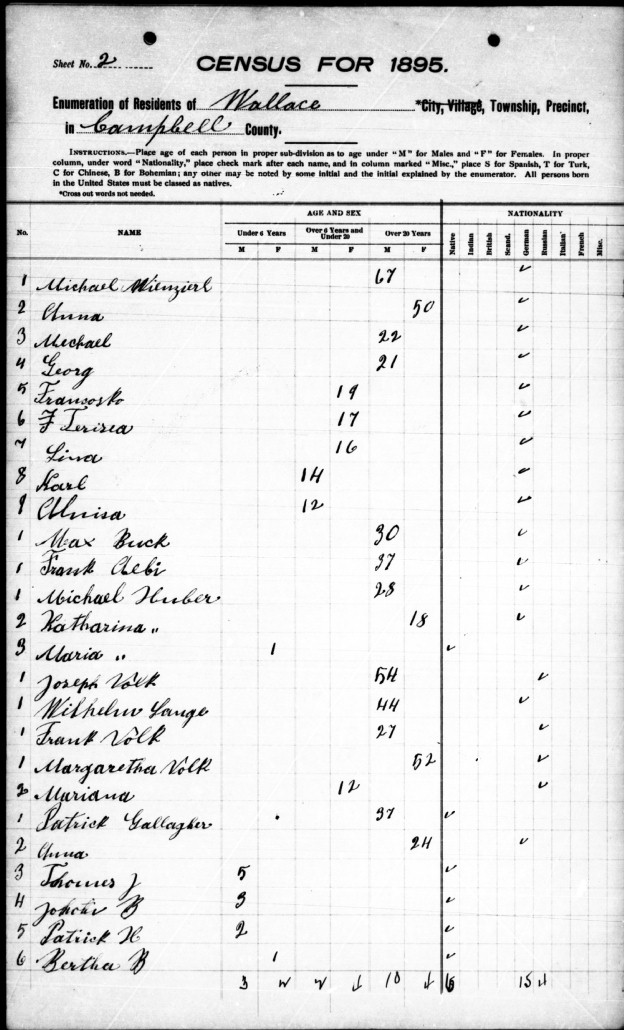 Sheet No. 2
CENSUS FOR 1895.
Enumeration of Residents of Wallace *City, Village, Township, Precinct,
in Campbell County.
INSTRUCTIONS.—Place age of each person in proper sub-division as to age under "M" for Males and "F" for Females. In proper
column, under word "Nationality," place check mark after each name, and in column marked "Misc.," place S for Spanish, T for Turk,
C for Chinese, B for Bohemian; any other may be noted by some initial and the initial explained by the enumerator. All persons born
in the United States must be classed as natives.
*Cross out words not needed.
AGE AND SEX NATIONALITY
No. NAME Under 6 Years Over 6 Years and Under 20 Over 20 Years Native Indian British Scand. German Russian Italian French Misc.
M F M F M F
1 Michael Wienzierl 67 ✓
2 Anna 50 ✓
3 Mechael 22 ✓
4 Georg 21 ✓
5 19 ✓
6 17 ✓
7 Lina 16 ✓
8 Karl 14 ✓
9 12 ✓
1 Max Buck 30 ✓
1 Frank Aebi 37 ✓
1 Michael Huber 28 ✓
2 Katharina " 18 ✓
3 Maria " 1 ✓
1 Joseph Völk 54 ✓
1 Wilhelm Lange 44 ✓
1 Frank Völk 27 ✓
1 Margaretha Volk 52 ✓
2 Mariana 12 ✓
1 Patrick Gallagher 37 ✓
2 Anna 24 ✓
3 Thomes J 5 ✓
4 B 3 ✓
5 Patrick H 2 ✓
6 Bertha B 1 ✓
3 2 2 4 10 4 6 15 4